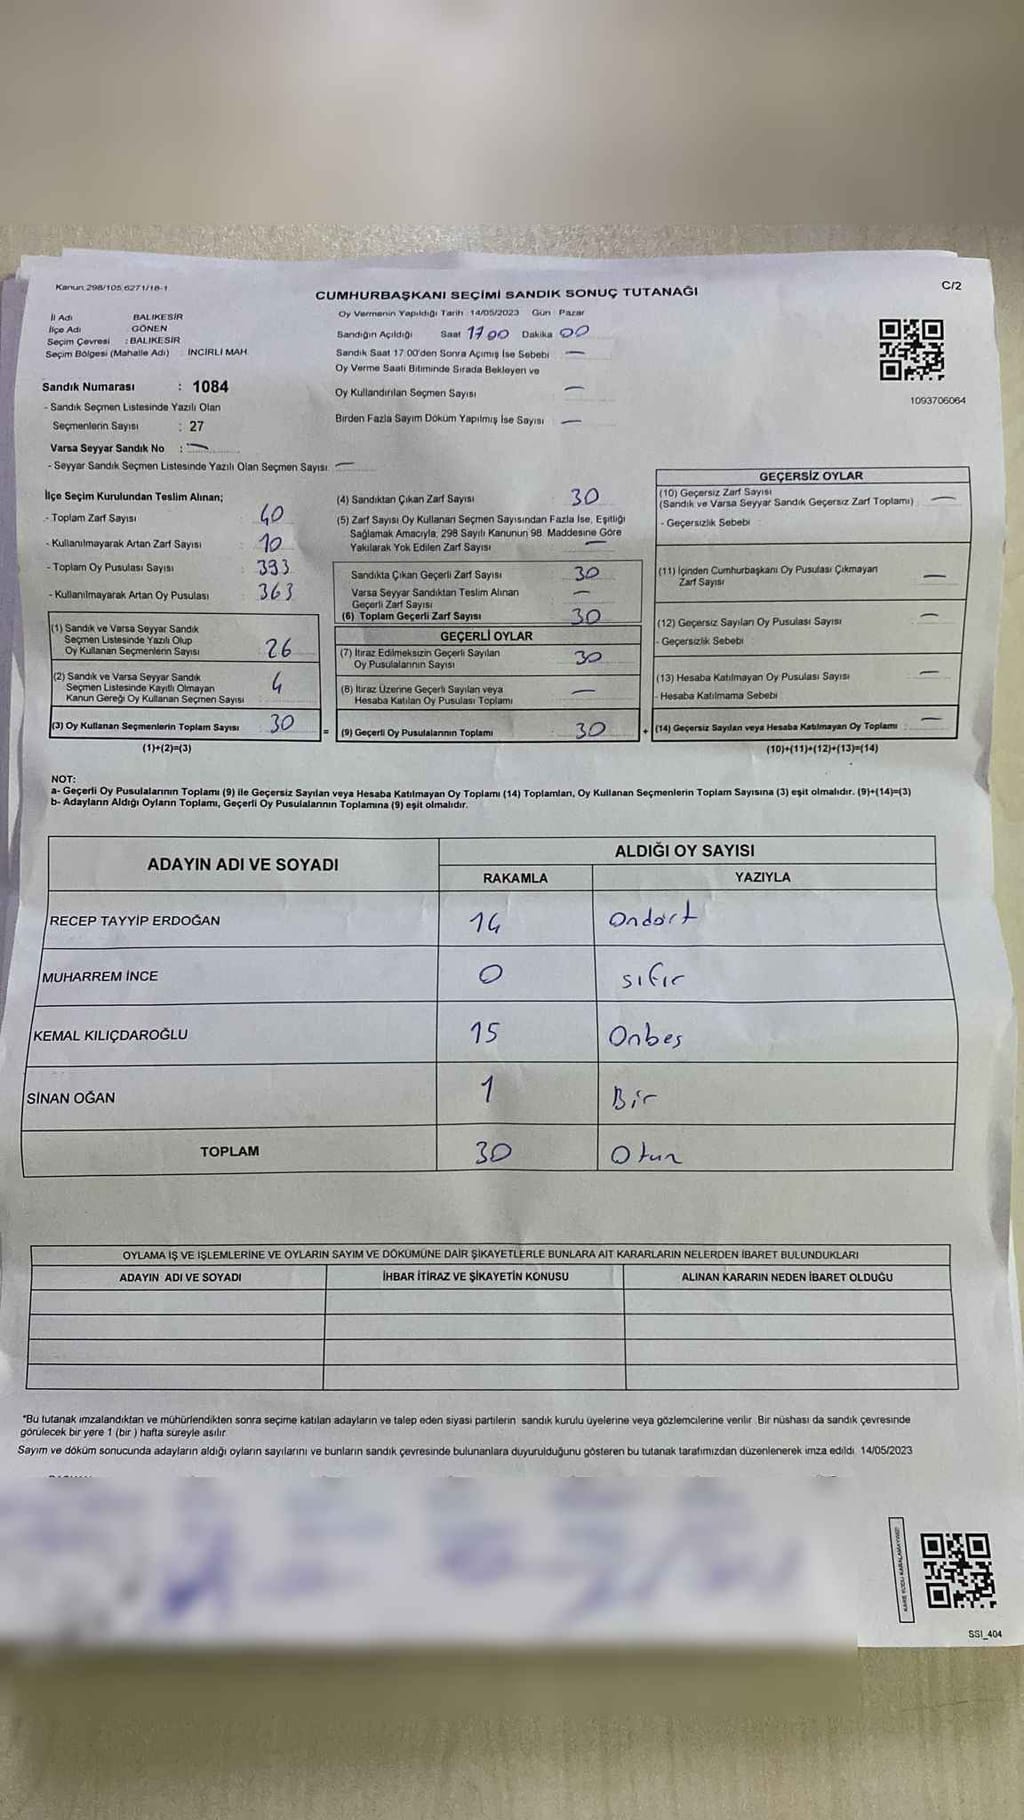 Kanun:298/105,6271/18-1
CUMHURBAŞKANI SEÇİMİ SANDIK SONUÇ TUTANAĞI
C/2
İl Adı BALIKESİR
İlçe Adı GÖNEN
Seçim Çevresi : BALIKESİR
Seçim Bölgesi (Mahalle Adı) : İNCİRLİ MAH.
Oy Vermenin Yapıldığı Tarih : 14/05/2023 Gün : Pazar
Sandığın Açıldığı Saat 17 00 Dakika 00
Sandık Saat 17:00'den Sonra Açımış İse Sebebi —
Oy Verme Saati Bitiminde Sırada Bekleyen ve
Oy Kullandırılan Seçmen Sayısı —
Birden Fazla Sayım Döküm Yapılmış İse Sayısı —
1093706064
Sandık Numarası : 1084
- Sandık Seçmen Listesinde Yazılı Olan
Seçmenlerin Sayısı : 27
Varsa Seyyar Sandık No : —
- Seyyar Sandık Seçmen Listesinde Yazılı Olan Seçmen Sayısı —
İlçe Seçim Kurulundan Teslim Alınan;
- Toplam Zarf Sayısı 40
- Kullanılmayarak Artan Zarf Sayısı 10
- Toplam Oy Pusulası Sayısı 393
- Kullanılmayarak Artan Oy Pusulası 363
(1) Sandık ve Varsa Seyyar Sandık
Seçmen Listesinde Yazılı Olup
Oy Kullanan Seçmenlerin Sayısı 26
(2) Sandık ve Varsa Seyyar Sandık
Seçmen Listesinde Kayıtlı Olmayan
Kanun Gereği Oy Kullanan Seçmen Sayısı 4
(3) Oy Kullanan Seçmenlerin Toplam Sayısı 30
(1)+(2)=(3)
(4) Sandıktan Çıkan Zarf Sayısı 30
(5) Zarf Sayısı Oy Kullanan Seçmen Sayısından Fazla İse, Eşitliği
Sağlamak Amacıyla, 298 Sayılı Kanunun 98. Maddesine Göre
Yakılarak Yok Edilen Zarf Sayısı —
Sandıkta Çıkan Geçerli Zarf Sayısı 30
Varsa Seyyar Sandıktan Teslim Alınan
Geçerli Zarf Sayısı —
(6) Toplam Geçerli Zarf Sayısı 30
GEÇERLİ OYLAR
(7) İtiraz Edilmeksizin Geçerli Sayılan
Oy Pusulalarının Sayısı 30
(8) İtiraz Üzerine Geçerli Sayılan veya
Hesaba Katılan Oy Pusulası Toplamı —
= (9) Geçerli Oy Pusulalarının Toplamı 30 +
GEÇERSİZ OYLAR
(10) Geçersiz Zarf Sayısı
(Sandık ve Varsa Seyyar Sandık Geçersiz Zarf Toplamı) —
- Geçersizlik Sebebi :
(11) İçinden Cumhurbaşkanı Oy Pusulası Çıkmayan
Zarf Sayısı —
(12) Geçersiz Sayılan Oy Pusulası Sayısı —
- Geçersizlik Sebebi
(13) Hesaba Katılmayan Oy Pusulası Sayısı —
- Hesaba Katılmama Sebebi
(14) Geçersiz Sayılan veya Hesaba Katılmayan Oy Toplamı : —
(10)+(11)+(12)+(13)=(14)
NOT:
a- Geçerli Oy Pusulalarının Toplamı (9) ile Geçersiz Sayılan veya Hesaba Katılmayan Oy Toplamı (14) Toplamları, Oy Kullanan Seçmenlerin Toplam Sayısına (3) eşit olmalıdır. (9)+(14)=(3)
b- Adayların Aldığı Oyların Toplamı, Geçerli Oy Pusulalarının Toplamına (9) eşit olmalıdır.
ADAYIN ADI VE SOYADI
ALDIĞI OY SAYISI
RAKAMLA YAZIYLA
RECEP TAYYİP ERDOĞAN 14 Ondört
MUHARREM İNCE 0 sıfır
KEMAL KILIÇDAROĞLU 15 Onbeş
SİNAN OĞAN 1 Bir
TOPLAM 30 Otuz
OYLAMA İŞ VE İŞLEMLERİNE VE OYLARIN SAYIM VE DÖKÜMÜNE DAİR ŞİKAYETLERLE BUNLARA AİT KARARLARIN NELERDEN İBARET BULUNDUKLARI
ADAYIN ADI VE SOYADI İHBAR İTİRAZ VE ŞİKAYETİN KONUSU ALINAN KARARIN NEDEN İBARET OLDUĞU
*Bu tutanak imzalandıktan ve mühürlendikten sonra seçime katılan adayların ve talep eden siyasi partilerin sandık kurulu üyelerine veya gözlemcilerine verilir. Bir nüshası da sandık çevresinde
görülecek bir yere 1 (bir ) hafta süreyle asılır.
Sayım ve döküm sonucunda adayların aldığı oyların sayılarını ve bunların sandık çevresinde bulunanlara duyurulduğunu gösteren bu tutanak tarafımızdan düzenlenerek imza edildi. 14/05/2023
KARE KODU KARALAMAYINIZ!
SSI_404